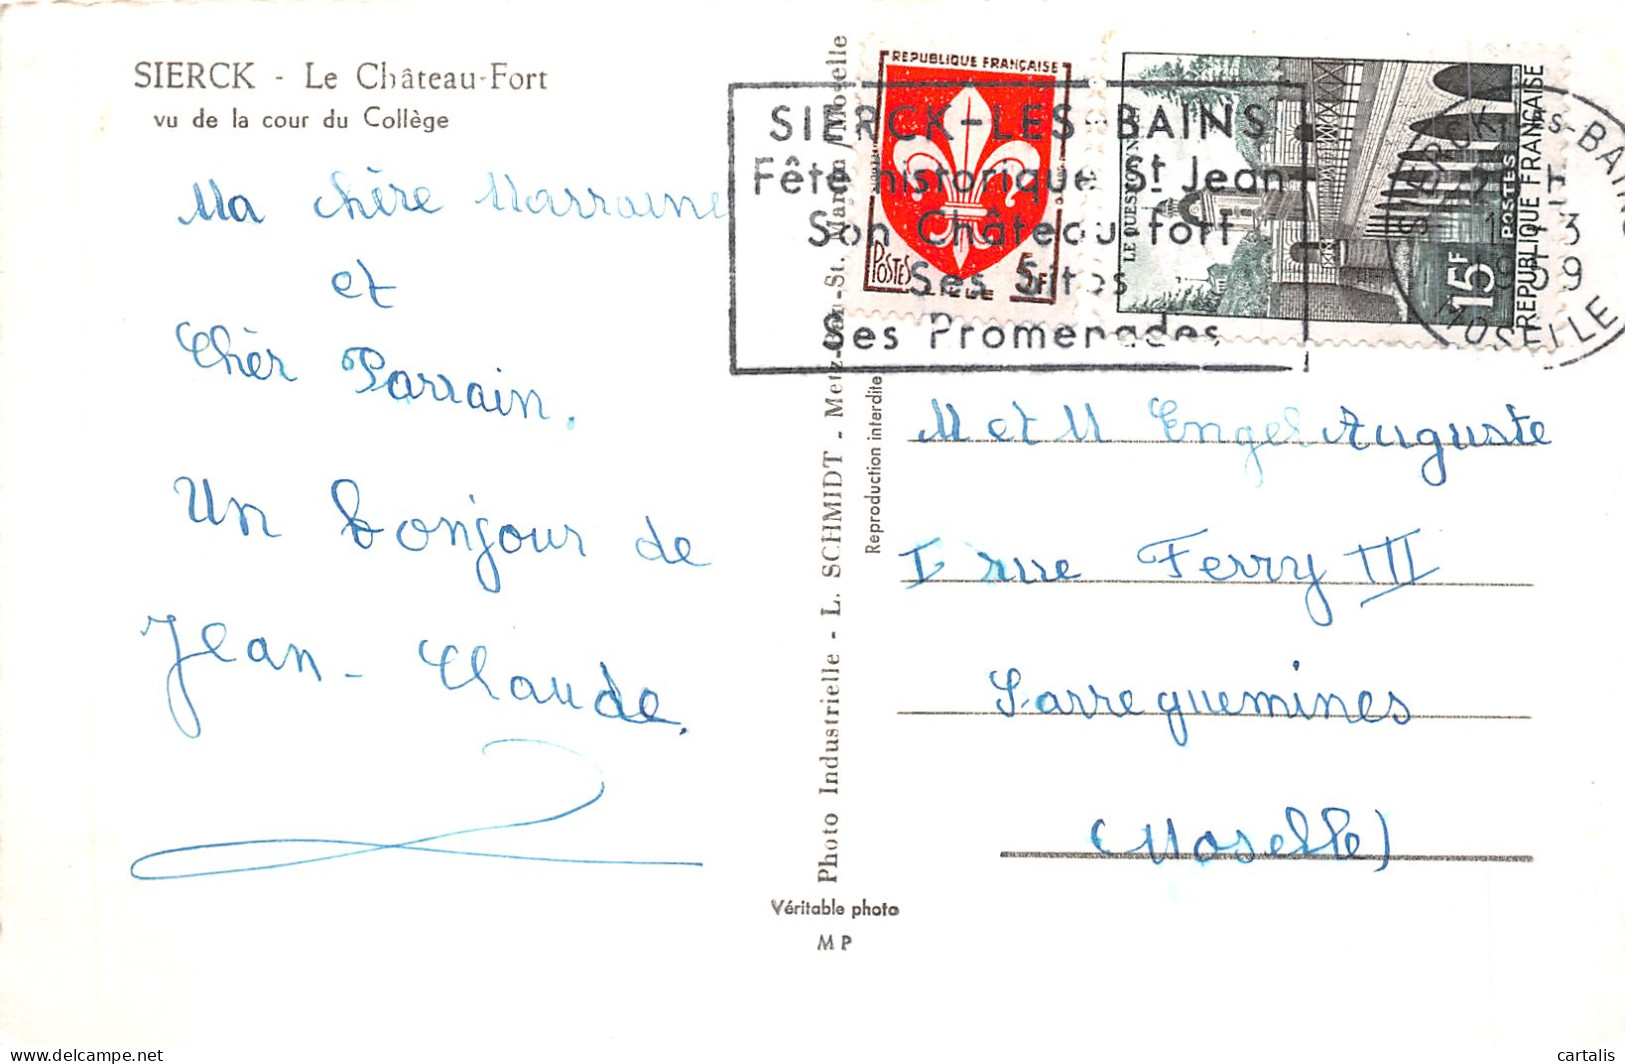 SIERCK - Le Château-Fort
vu de la cour du Collège
Ma chère Marraine
et
Chèr Parrain.
Un bonjour de
Jean-Claude.
Photo Industrielle - L. SCHMIDT - Metz-Ban-St. Martin / Moselle
Reproduction interdite
Véritable photo
MP
REPUBLIQUE FRANÇAISE
POSTES
LILLE
5F
LE QUESNOY/NORD
15F
POSTES
REPUBLIQUE FRANÇAISE
SIERCK-LES-BAINS
Fête historique St Jean
Son Château-fort
Ses Sites
Ses Promenades
SIERCK-LES-BAINS
1959
MOSELLE
M et M Engel Auguste
I rue Ferry III
Sarreguemines
(Moselle)
delcampe.net
cartalis